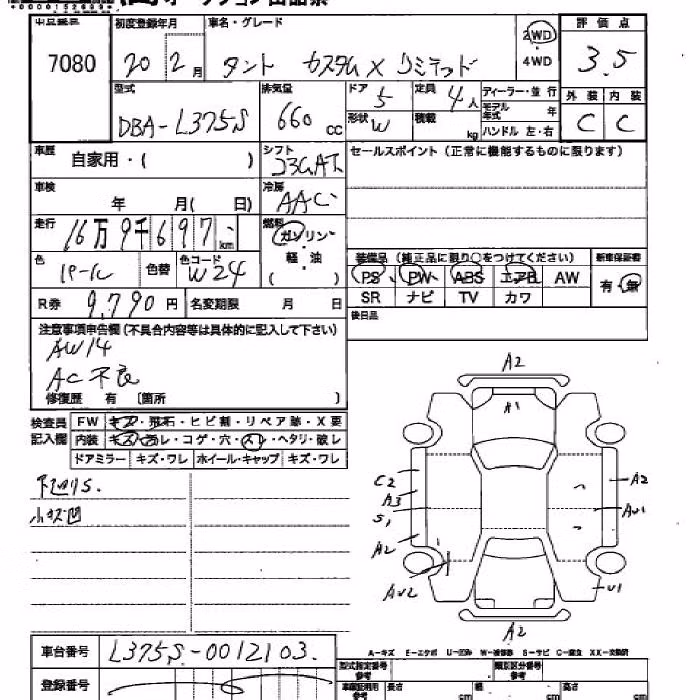 初度登録年月 車名・グレード 評価点
7080 20年 2月 タント カスタム X リミテッド 2WD 4WD 3.5
型式 排気量 ドア 5 定員 4人 ディーラー・並行 外装 内装
DBA-L375S 660 cc 形状 W 積載 kg モデル年式 年 ハンドル 左・右 C C
車歴 自家用・( ) シフト セールスポイント(正常に機能するものに限ります)
車検 年 月( 日) 冷房 AAC
走行 16万9千697 km 燃料 ガソリン・軽・油
色 パール 色替 色コード W24 装備品(純正品に限り○をつけてください) 新車保証書
PS PW ABS エアB AW 有・無
SR ナビ TV カワ
R券 9,790円 名変期限 月 日 後日品
注意事項申告欄(不具合内容等は具体的に記入して下さい)
AW14
AC不良
修復歴 有 〔箇所 〕
検査員 FW キズ・飛石・ヒビ割・リペア跡・X要
記入欄 内装 キズ・ヨゴレ・コゲ・穴・スレ・ヘタリ・破レ
ドアミラー キズ・ワレ ホイール・キャップ キズ・ワレ
下廻りS.
小キズ凹
A2
A1
C2
A3
S1
A2
AU2
A2
AU1
U1
A2
A-キズ E-エクボ U-凹ミ W-補修跡 S-サビ C-腐食 XX-交換済
車台番号 L375S-0012103.
登録番号
型式指定番号 参考 類別区分番号 参考
長さ cm 幅 cm 高さ cm